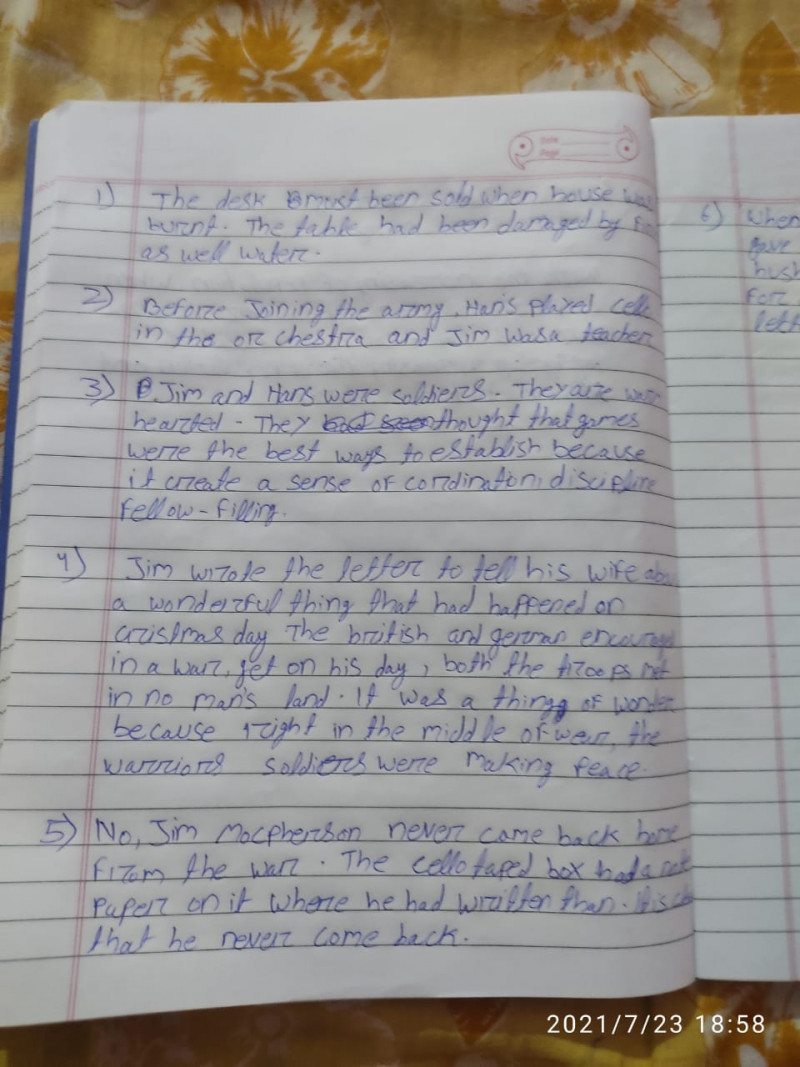 Date
Page
1) The desk must been sold when house was
burnt. The table had been damaged by
as well water.
2) Before Joining the army, Hans played cello
in the orchestra and Jim was a teacher
3) Jim and Hans were soldiers. They are
hearted. They thought that games
were the best ways to establish because
it create a sense of cordination, discipline
fellow-filling.
4) Jim wrote the letter to tell his wife
a wonderful thing that had happened on
cristmas day The british and german
in a war, yet on his day, both the troops met
in no man's land. It was a thing of wonder
because right in the middle of wear, the
warriors soldiers were making peace.
5) No, Jim Macpherson never came back home
from the war. The cello taped box had a
paper on it where he had written than. it is
that he never come back.
6) When
gave
hush
for
lett
2021/7/23 18:58